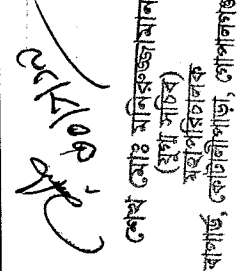 শেখ মোঃ মনিরুজ্জামান
(যুগ্ম সচিব)
মহাপরিচালক
বাপার্ড, কোটালীপাড়া, গোপালগঞ্জ